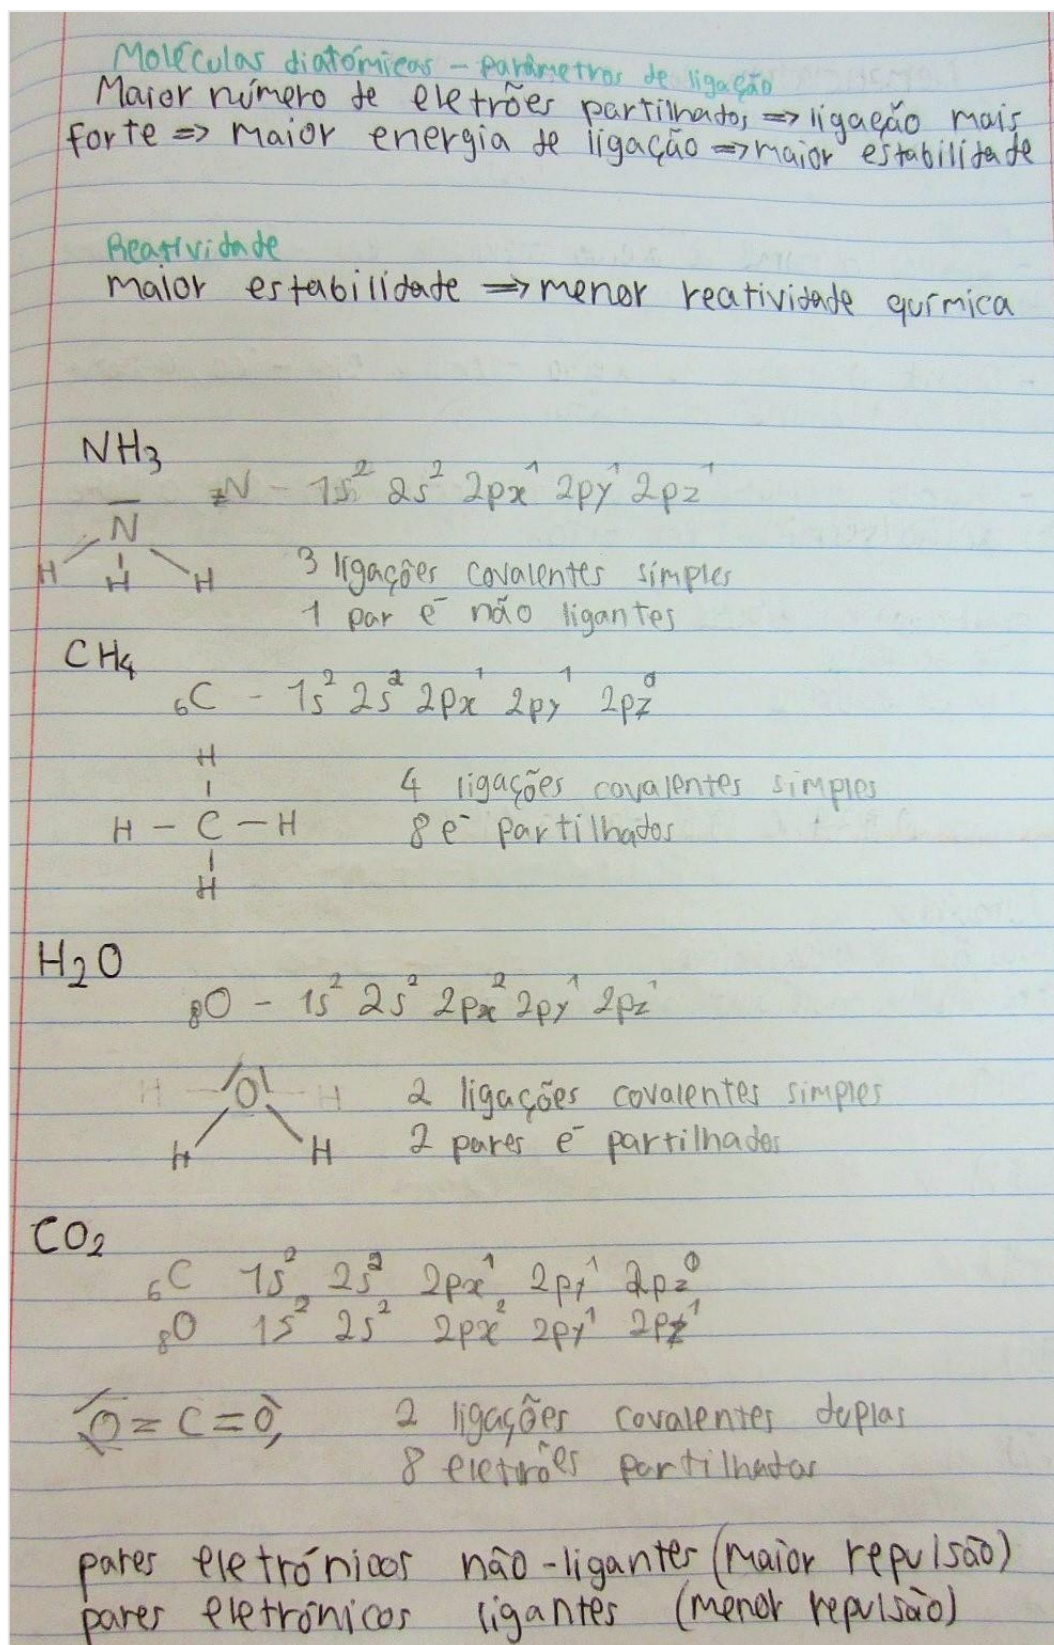 Moléculas diatómicas - parâmetros de ligação
Maior número de eletrões partilhados => ligação mais
forte => maior energia de ligação => maior estabilidade
Reatividade
maior estabilidade => menor reatividade química
NH₃
₇N - 1s² 2s² 2px¹ 2py¹ 2pz¹
N
H H H
3 ligações covalentes simples
1 par e⁻ não ligantes
CH₄
₆C - 1s² 2s² 2px¹ 2py¹ 2pz⁰
H
4 ligações covalentes simples
H - C - H
8 e⁻ partilhados
H
H₂O
₈O - 1s² 2s² 2px² 2py¹ 2pz¹
H O H
2 ligações covalentes simples
H H
2 pares e⁻ partilhados
CO₂
₆C 1s² 2s² 2px¹ 2py¹ 2pz⁰
₈O 1s² 2s² 2px² 2py¹ 2pz¹
O = C = O
2 ligações covalentes duplas
8 eletrões partilhados
pares eletrónicos não-ligantes (maior repulsão)
pares eletrónicos ligantes (menor repulsão)